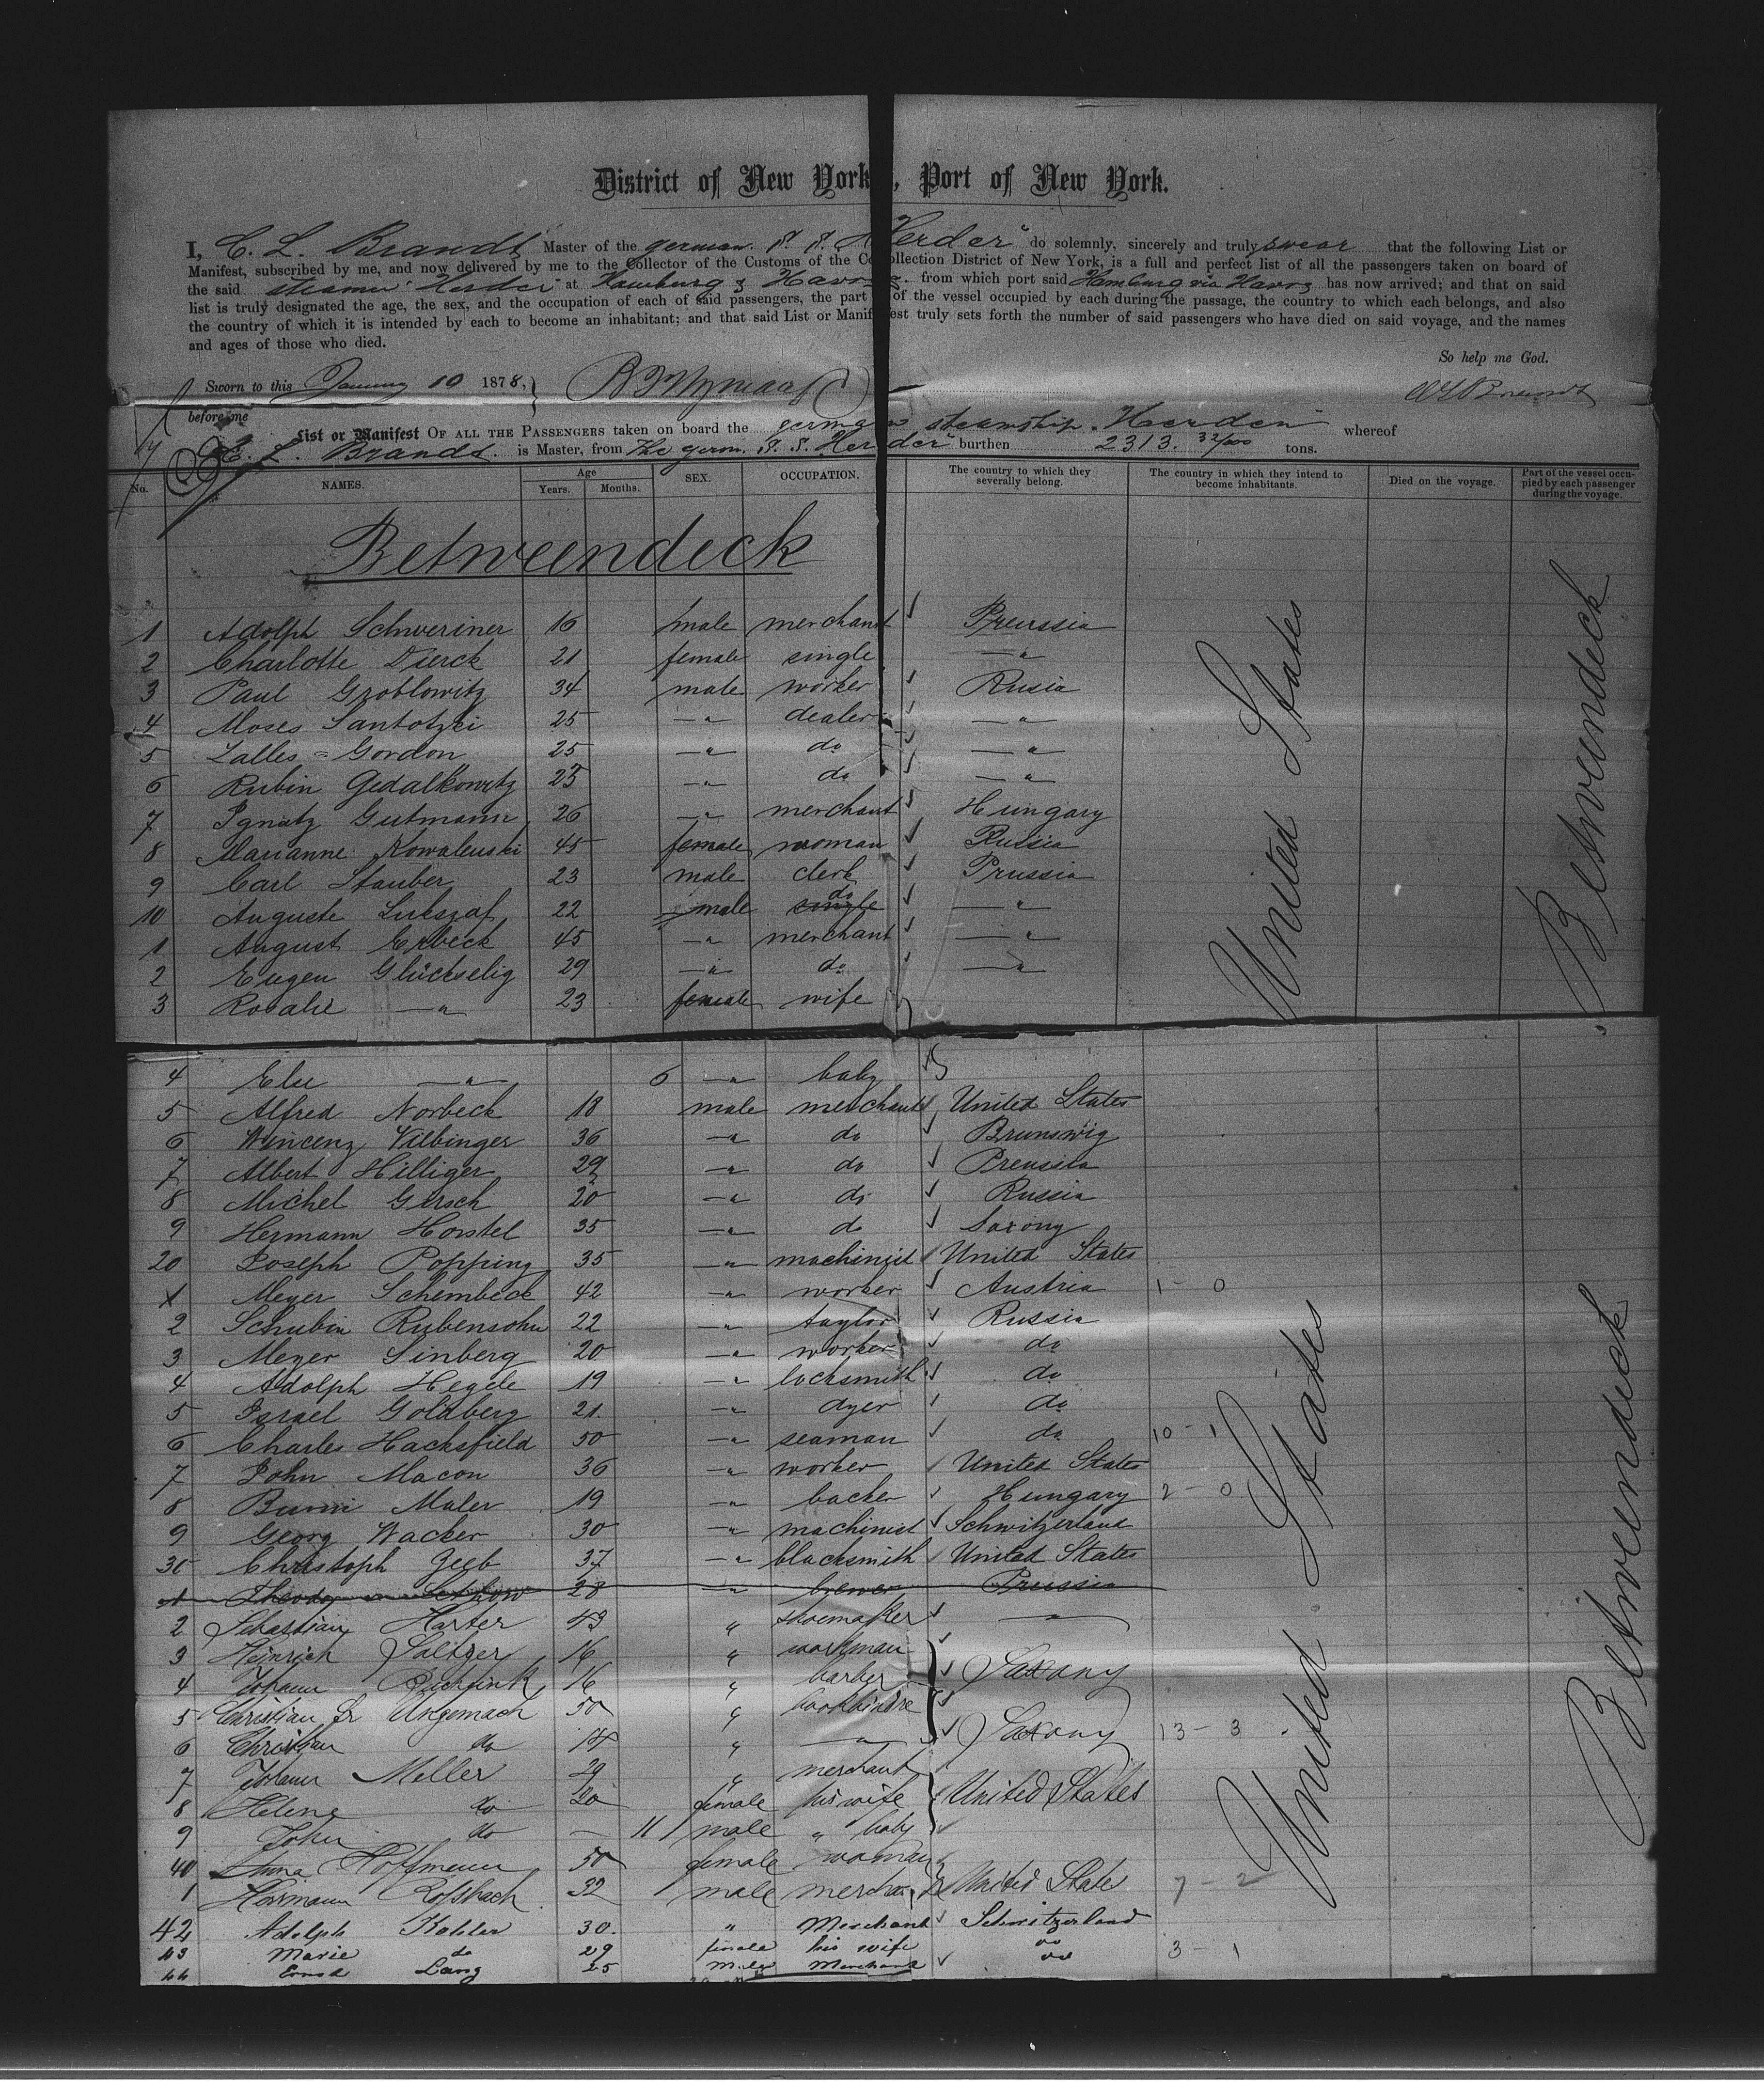 District of New York, Port of New York.
I, C. L. Brandt Master of the german. S. S. "Herder" do solemnly, sincerely and truly swear that the following List or
Manifest, subscribed by me, and now delivered by me to the Collector of the Customs of the Collection District of New York, is a full and perfect list of all the passengers taken on board of
the said steamer "Herder" at Hamburg & Havre from which port said Hamburg via Havre has now arrived; and that on said
list is truly designated the age, the sex, and the occupation of each of said passengers, the part of the vessel occupied by each during the passage, the country to which each belongs, and also
the country of which it is intended by each to become an inhabitant; and that said List or Manifest truly sets forth the number of said passengers who have died on said voyage, and the names
and ages of those who died.
So help me God.
Sworn to this January 10 1878,
before me
List or Manifest OF ALL THE PASSENGERS taken on board the german steamship Herder whereof
C. L. Brandt. is Master, from the germ. S. S. Herder burthen 2313. 32/100 tons.
No. NAMES. Age Years. Months. SEX. OCCUPATION. The country to which they severally belong. The country in which they intend to become inhabitants. Died on the voyage. Part of the vessel occupied by each passenger during the voyage.
Betweendeck
1 Adolph Schweriner 16 male merchant Preussia
2 Charlotte Dierck 21 female single — " —
3 Paul Groblowitz 34 male worker Rusia
4 Moses Santotzki 25 — " — dealer — " —
5 Lalles = Gordon 25 — " — do — " —
6 Rubin Gedalkowitz 25 — " — do — " —
7 Ignatz Gutmann 26 — " — merchant Hungary
8 Marianne Kowalewski 45 female woman Russia
9 Carl Stauber 23 male clerk Prussia
10 Auguste Lukszaf 22 male single do — " —
1 August Erbeck 45 — " — merchant — " —
2 Eugen Glückselig 29 — " — do — " —
3 Rosalie — " — 23 female wife
4 Else — " — 6 — " — baby
5 Alfred Norbeck 18 male merchant United States
6 Wincenz Vilbinger 36 — " — do Brunswig
7 Albert Hilliger 29 — " — do Preussia
8 Michel Gersch 20 — " — do Russia
9 Hermann Horstel 35 — " — do Saxony
20 Joseph Popping 35 — " — machinist United States
1 Meyer Schembeck 42 — " — worker Austria 1 - 0
2 Schubin Rubensohn 22 — " — taylor Russia
3 Meyer Sinberg 20 — " — worker do
4 Adolph Hegele 19 — " — locksmith do
5 Israel Goldberg 21. — " — dyer do
6 Charles Hacksfield 50 — " — seaman do 10 - 1
7 John Macon 36 — " — worker United States
8 Bumi Maler 19 — " — backer Hungary 2 - 0
9 Georg Wacker 30 — " — machinist Schwitzerland
30 Christoph Zeeb 37 — " — blacksmith United States
1 28 — " — brewer Preussia
2 Sebastian Harter 43 " shoemaker — " —
3 Heinrich Saltzer 16 " workman
4 Johann 16 " barber Saxony
5 Christian Fr Ungemach 50 "
6 Christian do 14 " — " — Saxony 13 - 3
7 Johann Meller 29 " merchant
8 Helene do 20 female his wife United States
9 John do — 11 male " baby
40 Anna Hoffmann 50 female woman
1 Hermann Rossbach 32 male merchant United States 7 - 2
42 Adolph Kohler 30. " Merchant Schwitzerland
43 Marie do 29 female his wife do 3 - 1
44 Ernst Lang 25 Male Merchant do
United States
Betweendeck
United States
Betweendeck